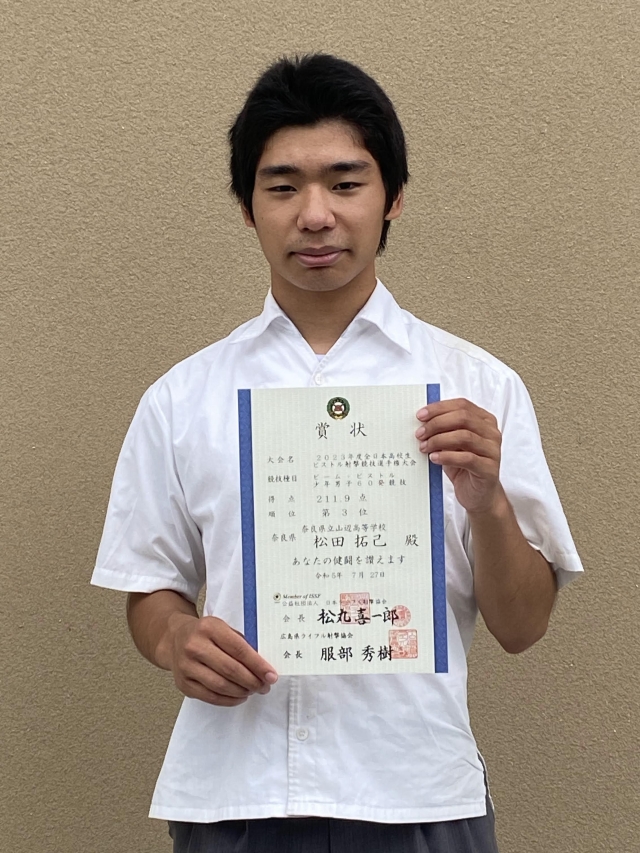 賞状
大会名 2023年度全日本高校生
ピストル射撃競技選手権大会
競技種目 ビーム・ピストル
少年男子60発競技
得点 211.9 点
順位 第 3 位
奈良県立山辺高等学校
奈良県 松田 拓己 殿
あなたの健闘を讃えます
令和5年 7月 27日
Member of ISSF
公益社団法人 日本ライフル射撃協会
会長 松丸喜一郎
広島県ライフル射撃協会
会長 服部 秀樹